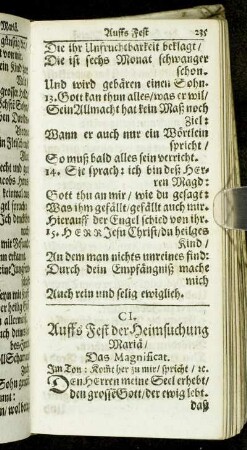 Auffs Fest 235
Die ihr Unfruchtbarkeit beklagt/
Die ist sechs Monat schwanger
schon.
Und wird gebären einen Sohn.
13. Gott kan thun alles/was er wil/
Sein Allmacht hat kein Maß noch
Ziel:
Wann er auch nur ein Wörtlein
spricht/
So muß bald alles sein verricht.
14. Sie sprach: ich bin deß HEr-
ren Magd:
Gott thu an mir/ wie du gesagt:
Was ihm gefällt/gefällt auch mir/
Hierauff der Engel schied von ihr.
15. HERR Jesu Christ/du heilges
Kind/
An dem man nichts unreines find:
Durch dein Empfängniß mache
mich
Auch rein und selig ewiglich.
CI.
Auffs Fest der Heimsuchung
Mariä/
Das Magnificat.
Im Ton: Komt her zu mir/ spricht/ ꝛc.
DEn HErren meine Seel erhebt/
den grossē Gott/der ewig lebt.
daß